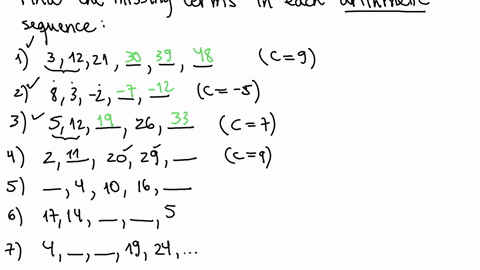 Find the missing terms in each arithmetic
sequence:
1) ✓ 3, 12, 21, 30, 39, 48 (C=9)
2) ✓ 8, 3, -2, -7, -12 (C=-5)
3) ✓ 5, 12, 19, 26, 33 (C=7)
4) 2, 11, 20, 29, __ (C=9)
5) __, 4, 10, 16, __
6) 17, 14, __, __, 5
7) 4, __, __, 19, 24, ...